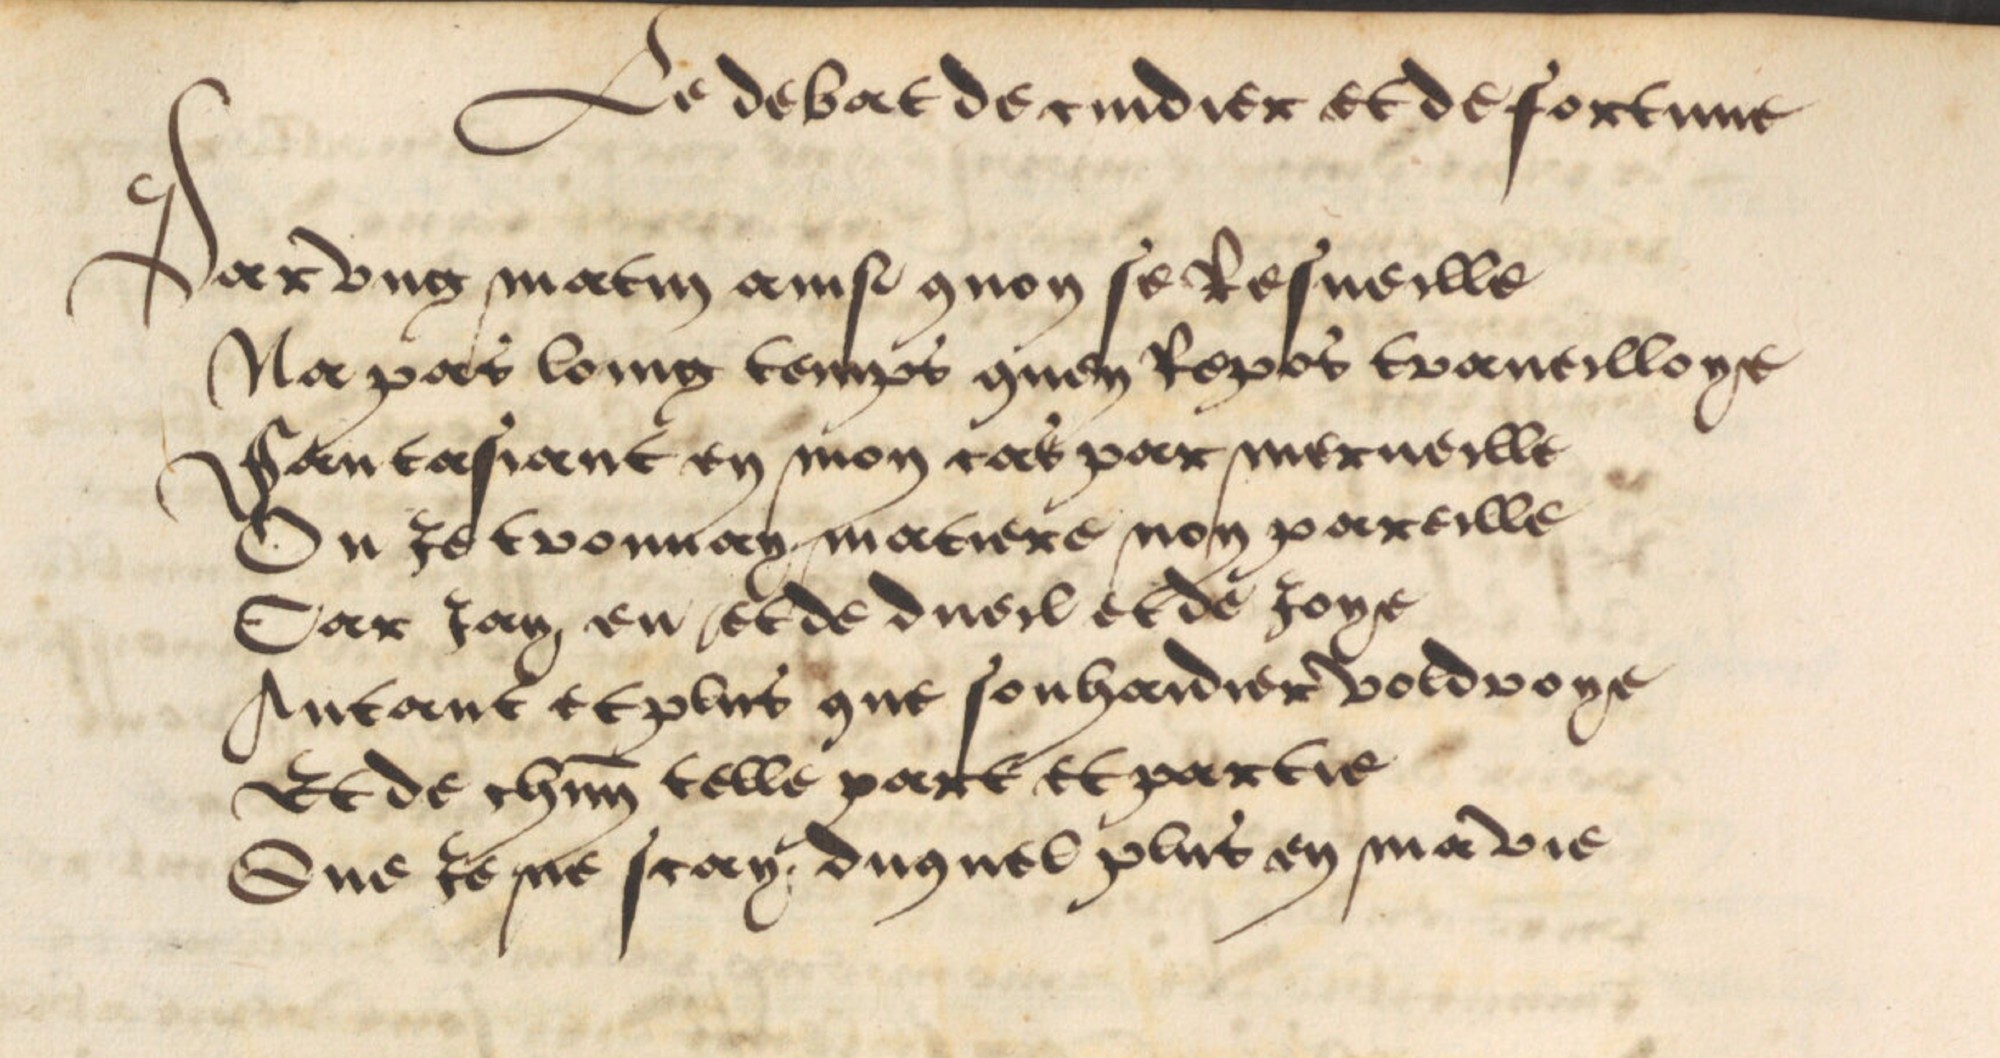 Le debat de cuidier et de fortune
Par vng matin ainsi quon se Resueille
Na pas loing temps quen Repos traueilloye
Fantasiant en mon cas par merueille
Ou Je trouuay matiere non pareille
Car Jay eu et de dueil et de Joye
Autant et plus que souhaidier voldroye
Et de chũn telle part et partie
Que Je ne scay duquel plus en ma vie